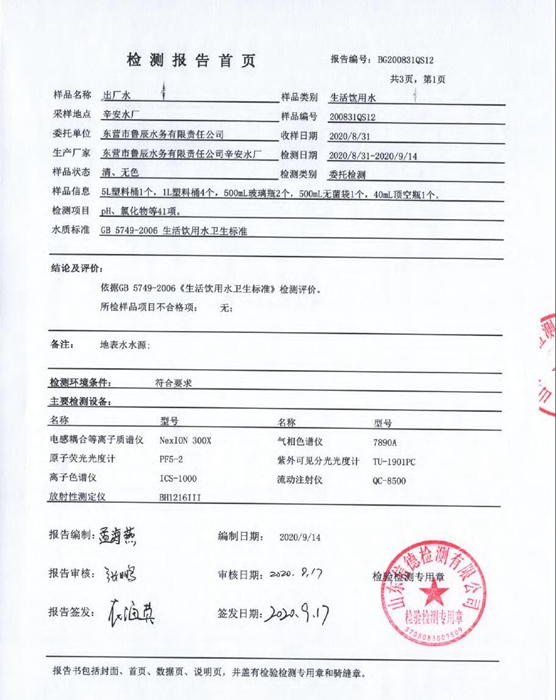 检测报告首页
报告编号：BG200831QS12
共3页，第1页
样品名称 出厂水 样品类别 生活饮用水
采样地点 辛安水厂 样品编号 200831QS12
委托单位 东营市鲁辰水务有限责任公司 收样日期 2020/8/31
生产厂家 东营市鲁辰水务有限责任公司辛安水厂 检测日期 2020/8/31-2020/9/14
样品状态 清、无色 检测类别 委托检测
样品信息 5L塑料桶1个，1L塑料桶4个，500mL玻璃瓶2个，500mL无菌袋1个，40mL顶空瓶1个。
检测项目 pH、氯化物等41项。
水质标准 GB 5749-2006 生活饮用水卫生标准
结论及评价：
依据GB 5749-2006《生活饮用水卫生标准》检测评价。
所检样品项目不合格项： 无；
备注： 地表水水源；
检测环境条件： 符合要求
主要检测设备：
名称 型号 名称 型号
电感耦合等离子质谱仪 NexION 300X 气相色谱仪 7890A
原子荧光光度计 PF5-2 紫外可见分光光度计 TU-1901PC
离子色谱仪 ICS-1000 流动注射仪 QC-8500
放射性测定仪 BH1216III
报告编制： 编制日期： 2020/9/14
报告审核： 审核日期：2020.9.17 检验检测专用章
报告签发： 签发日期：2020.9.17
检验检测专用章
报告书包括封面、首页、数据页、说明页，并盖有检验检测专用章和骑缝章。